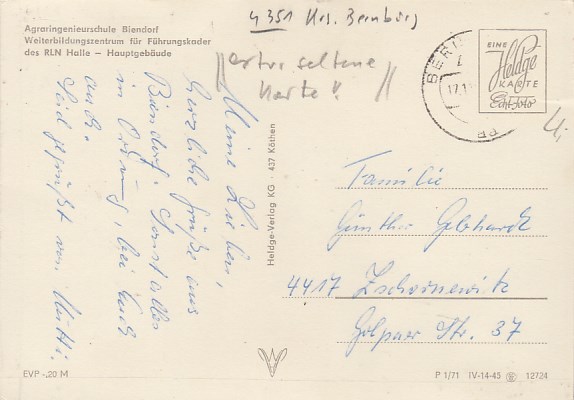 Agraringenieurschule Biendorf
Weiterbildungszentrum für Führungskader
des RLN Halle – Hauptgebäude
4351 Krs. Bernburg
"extra seltene
Karte"
EINE
Heldge
KARTE
Echt-Foto
BERN
17.1
Meine Lieben,
Herzliche Grüße aus
Biendorf. Sonst alles
in Ordnung, bei Euch
auch.
Seid gegrüßt von Mutti.
Heldge-Verlag KG · 437 Köthen
Familie
Günther Gebhardt
4417 Zschornewitz
Golpaer Str. 37
EVP -,20 M
P 1/71 IV-14-45 12724